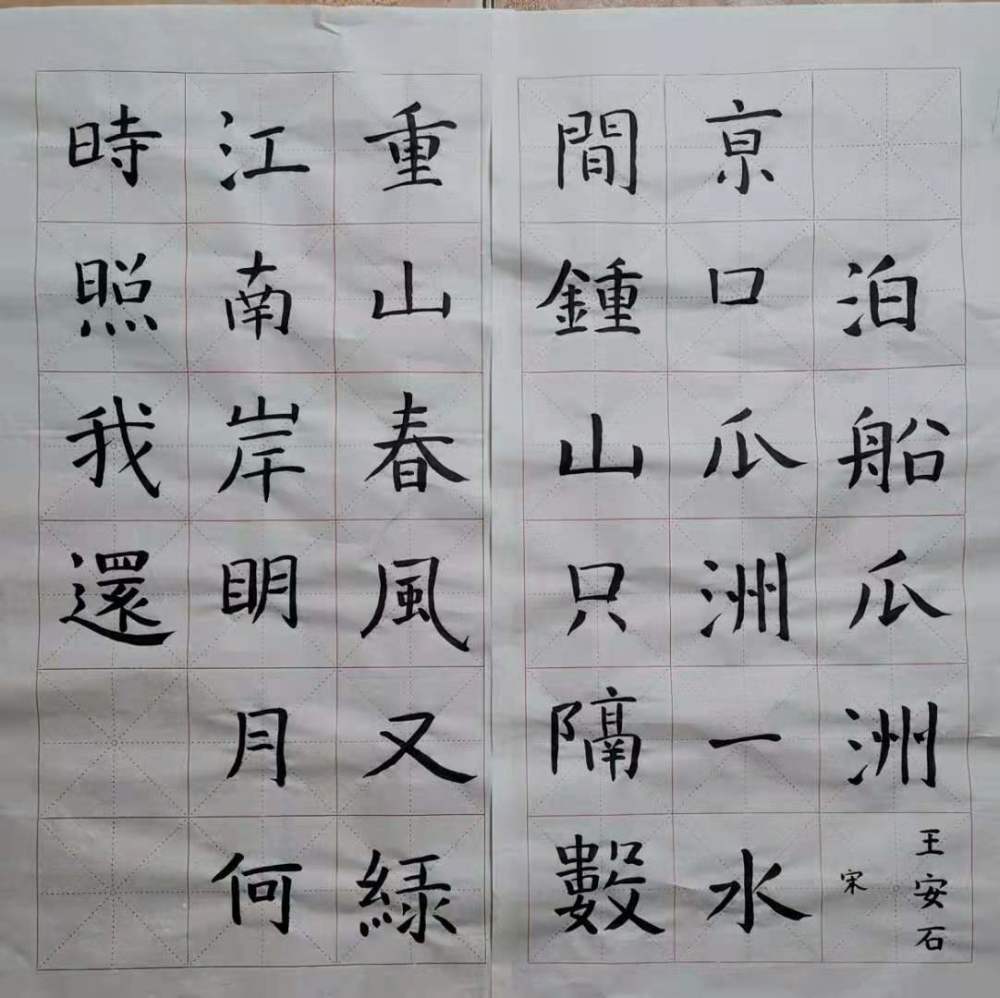 泊船瓜洲
王安石
宋
京口瓜洲一水
間鍾山只隔數
重山春風又綠
江南岸明月何
時照我還